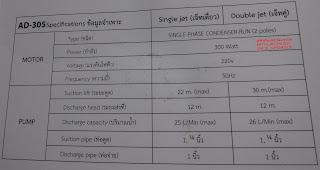 AD-305 Specifications ข้อมูลจำเพาะ Single jet (เจ็ทเดี่ยว) Double jet (เจ็ทคู่)
MOTOR
Type (ชนิด) SINGLE PHASE CONDENSER-RUN (2 poles)
Power (กำลัง) 300 Watt
Voltage (แรงดันไฟฟ้า) 220v
Frequency (ความถี่) 50Hz
PUMP
Suction lift (ระยะดูด) 22 m. (max) 30 m.(max)
Discharge head (ระยะส่ง) 12 m. 12 m.
Discharge capacity (ปริมาณน้ำ) 25 L/Min (max) 26 L/Min (max)
Suction pipe (ท่อดูด) 1, ¼ นิ้ว 1, ¼ นิ้ว
Discharge pipe (ท่อจ่าย) 1 นิ้ว 1 นิ้ว